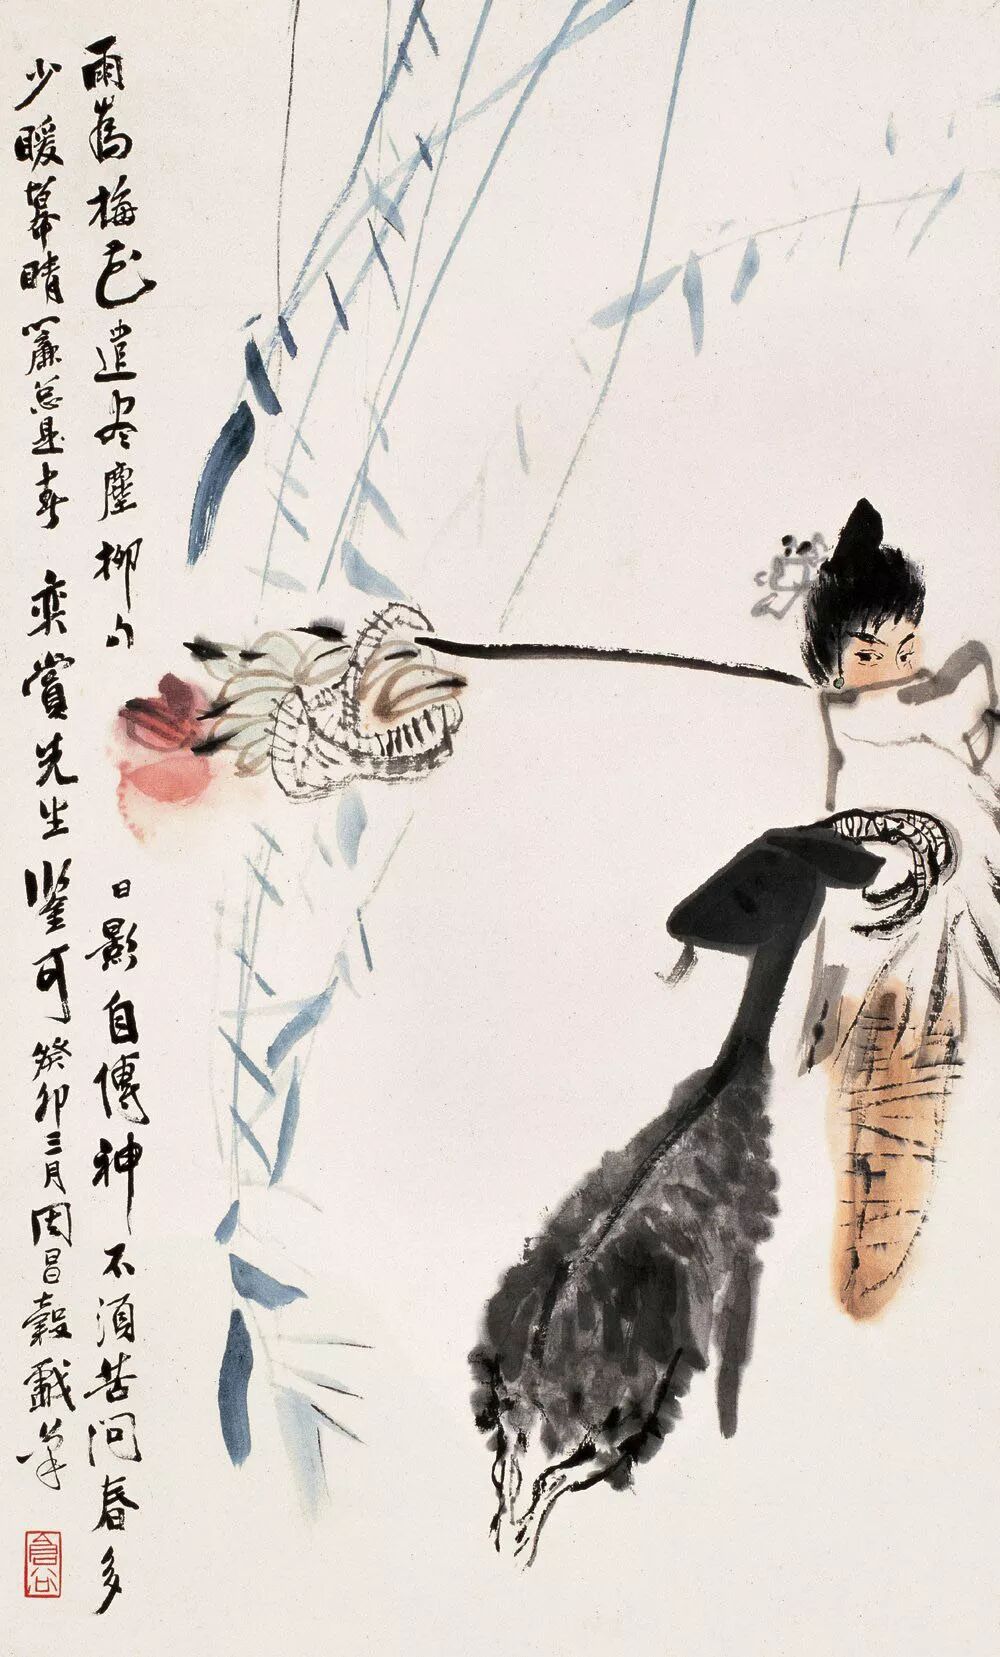 雨為梅花遣盡塵柳勾日影自傳神不須苦問春多
少暖幕晴簾總是春 奕賞先生鑒可 癸卯三月周昌穀戲筆